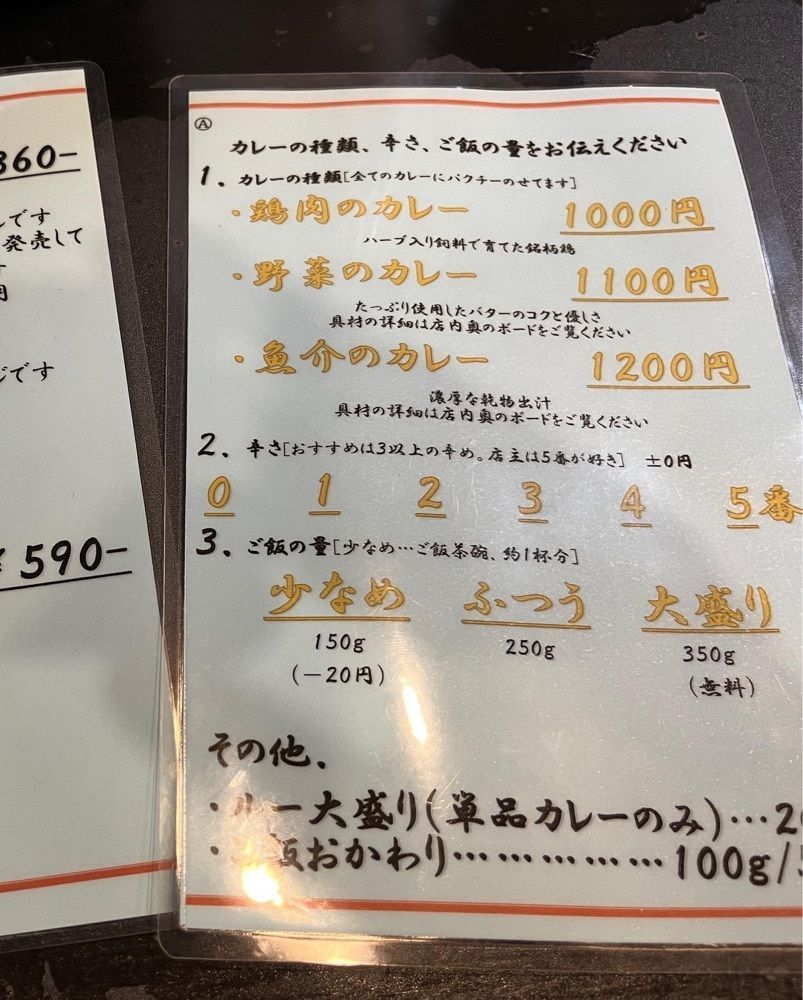 360-
です
発売して
です
590-
Ⓐ
カレーの種類、辛さ、ご飯の量をお伝えください
1. カレーの種類[全てのカレーにパクチーのせてます]
・鶏肉のカレー 1000円
ハーブ入り飼料で育てた銘柄鶏
・野菜のカレー 1100円
たっぷり使用したバターのコクと優しさ
具材の詳細は店内奥のボードをご覧ください
・魚介のカレー 1200円
濃厚な乾物出汁
具材の詳細は店内奥のボードをご覧ください
2. 辛さ[おすすめは3以上の辛め。店主は5番が好き] ±0円
0 1 2 3 4 5番
3. ご飯の量[少なめ…ご飯茶碗、約1杯分]
少なめ ふつう 大盛り
150g 250g 350g
(−20円) (無料)
その他、
・ルー大盛り(単品カレーのみ)…2
・ご飯おかわり……………100g/